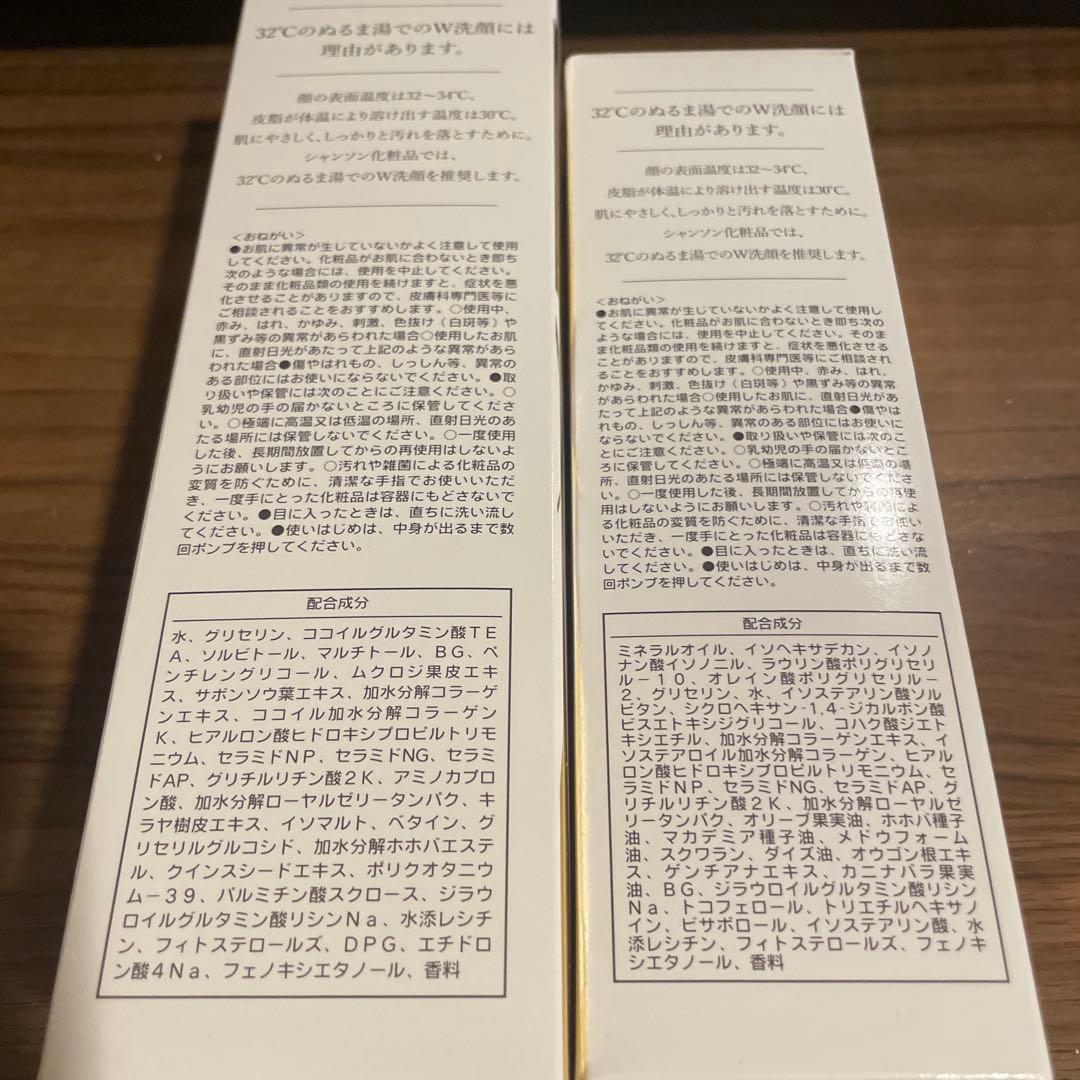 32℃のぬるま湯でのW洗顔には
理由があります。
顔の表面温度は32～34℃、
皮脂が体温により溶け出す温度は30℃。
肌にやさしく、しっかりと汚れを落とすために。
シャンソン化粧品では、
32℃のぬるま湯でのW洗顔を推奨します。
＜おねがい＞
●お肌に異常が生じていないかよく注意して使用
してください。化粧品がお肌に合わないとき即ち
次のような場合には、使用を中止してください。
そのまま化粧品類の使用を続けますと、症状を悪
化させることがありますので、皮膚科専門医等に
ご相談されることをおすすめします。○使用中、
赤み、はれ、かゆみ、刺激、色抜け（白斑等）や
黒ずみ等の異常があらわれた場合○使用したお肌
に、直射日光があたって上記のような異常があら
われた場合●傷やはれもの、しっしん等、異常の
ある部位にはお使いにならないでください。●取
り扱いや保管には次のことにご注意ください。○
乳幼児の手の届かないところに保管してくださ
い。○極端に高温又は低温の場所、直射日光のあ
たる場所には保管しないでください。○一度使用
した後、長期間放置してからの再使用はしないよ
うにお願いします。○汚れや雑菌による化粧品の
変質を防ぐために、清潔な手指でお使いいただ
き、一度手にとった化粧品は容器にもどさないで
ください。●目に入ったときは、直ちに洗い流し
てください。●使いはじめは、中身が出るまで数
回ポンプを押してください。
配合成分
水、グリセリン、ココイルグルタミン酸ＴＥ
Ａ、ソルビトール、マルチトール、ＢＧ、ペ
ンチレングリコール、ムクロジ果皮エキ
ス、サボンソウ葉エキス、加水分解コラーゲ
ンエキス、ココイル加水分解コラーゲン
Ｋ、ヒアルロン酸ヒドロキシプロピルトリモ
ニウム、セラミドＮＰ、セラミドＮＧ、セラミ
ドＡＰ、グリチルリチン酸２Ｋ、アミノカプロ
ン酸、加水分解ローヤルゼリータンパク、キ
ラヤ樹皮エキス、イソマルト、ベタイン、グ
リセリルグルコシド、加水分解ホホバエステ
ル、クインスシードエキス、ポリクオタニウ
ム－３９、パルミチン酸スクロース、ジラウ
ロイルグルタミン酸リシンＮａ、水添レシチ
ン、フィトステロールズ、ＤＰＧ、エチドロ
ン酸４Ｎａ、フェノキシエタノール、香料
32℃のぬるま湯でのW洗顔には
理由があります。
顔の表面温度は32～34℃、
皮脂が体温により溶け出す温度は30℃。
肌にやさしく、しっかりと汚れを落とすために。
シャンソン化粧品では、
32℃のぬるま湯でのW洗顔を推奨します。
＜おねがい＞
●お肌に異常が生じていないかよく注意して使用し
てください。化粧品がお肌に合わないとき即ち次の
ような場合には、使用を中止してください。そのま
ま化粧品類の使用を続けますと、症状を悪化させる
ことがありますので、皮膚科専門医等にご相談され
ることをおすすめします。○使用中、赤み、はれ、
かゆみ、刺激、色抜け（白斑等）や黒ずみ等の異常
があらわれた場合○使用したお肌に、直射日光があ
たって上記のような異常があらわれた場合●傷やは
れもの、しっしん等、異常のある部位にはお使いに
ならないでください。●取り扱いや保管には次のこ
とにご注意ください。○乳幼児の手の届かないとこ
ろに保管してください。○極端に高温又は低温の場
所、直射日光のあたる場所には保管しないでくださ
い。○一度使用した後、長期間放置してからの再使
用はしないようにお願いします。○汚れや雑菌によ
る化粧品の変質を防ぐために、清潔な手指でお使い
いただき、一度手にとった化粧品は容器にもどさな
いでください。●目に入ったときは、直ちに洗い流
してください。●使いはじめは、中身が出るまで数
回ポンプを押してください。
配合成分
ミネラルオイル、イソヘキサデカン、イソノ
ナン酸イソノニル、ラウリン酸ポリグリセリ
ル－１０、オレイン酸ポリグリセリル－
２、グリセリン、水、イソステアリン酸ソル
ビタン、シクロヘキサン-1,4-ジカルボン酸
ビスエトキシジグリコール、コハク酸ジエト
キシエチル、加水分解コラーゲンエキス、イ
ソステアロイル加水分解コラーゲン、ヒアル
ロン酸ヒドロキシプロピルトリモニウム、セ
ラミドＮＰ、セラミドＮＧ、セラミドＡＰ、グ
リチルリチン酸２Ｋ、加水分解ローヤルゼ
リータンパク、オリーブ果実油、ホホバ種子
油、マカデミア種子油、メドウフォーム
油、スクワラン、ダイズ油、オウゴン根エキ
ス、ゲンチアナエキス、カニナバラ果実
油、ＢＧ、ジラウロイルグルタミン酸リシン
Ｎａ、トコフェロール、トリエチルヘキサノ
イン、ビサボロール、イソステアリン酸、水
添レシチン、フィトステロールズ、フェノキ
シエタノール、香料